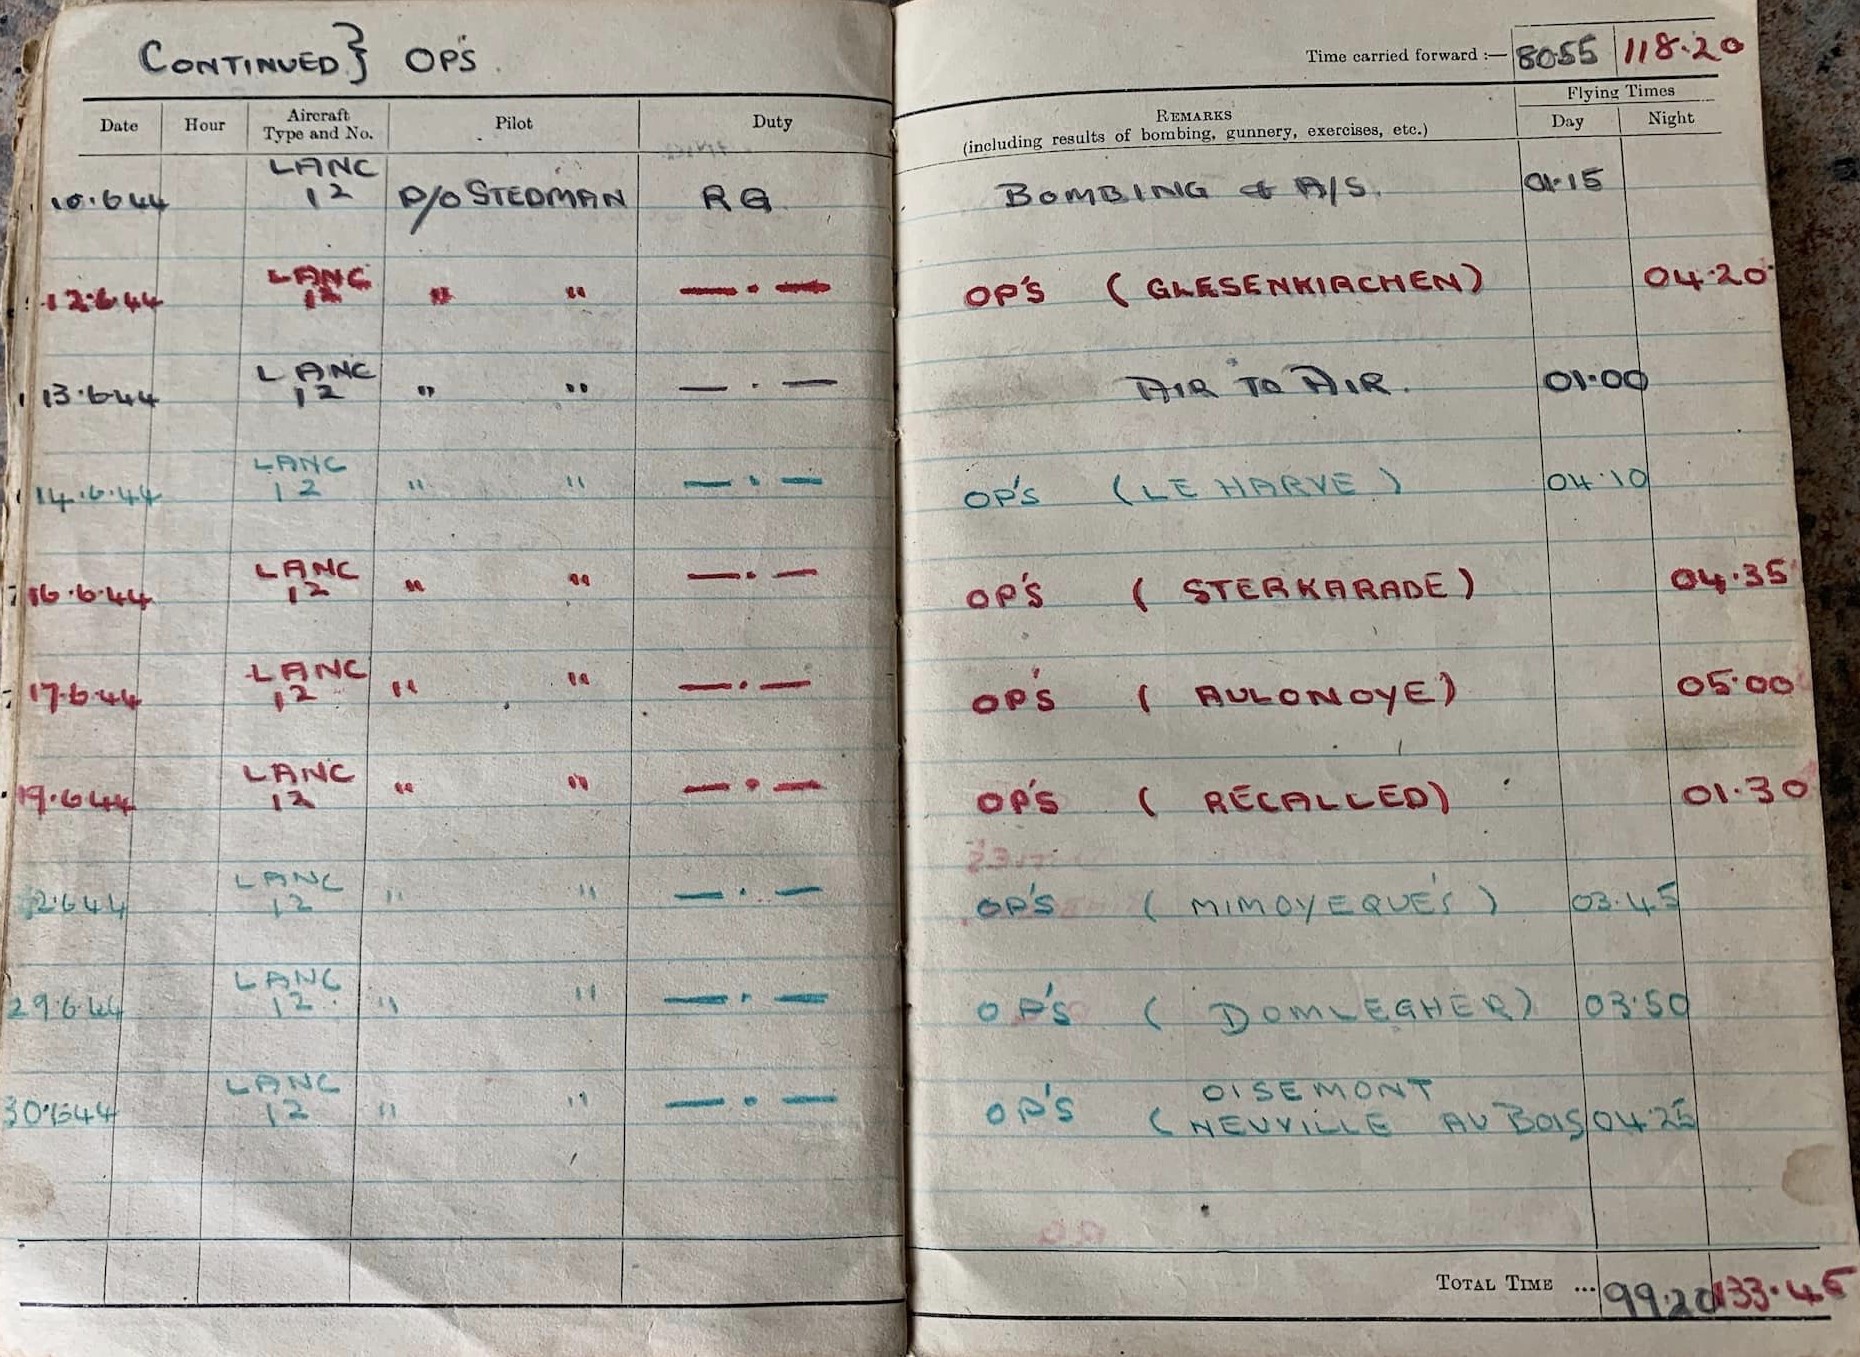 CONTINUED} OP'S
Time carried forward :— 8055 118·20
Date Hour Aircraft Type and No. Pilot Duty
REMARKS (including results of bombing, gunnery, exercises, etc.) Flying Times Day Night
10·6 44 LANC 12 P/O STEDMAN RG BOMBING & A/S. 01·15
12·6·44 LANC 12 " " — · — OP'S ( GLESENKIRCHEN) 04·20
13·6·44 LANC 12 " " — · — AIR TO AIR. 01·00
14·6·44 LANC 12 " " — · — OP'S ( LE HARVE ) 04·10
16·6·44 LANC 12 " " — · — OP'S ( STERKARADE ) 04·35
17·6·44 LANC 12 " " — · — OP'S ( AULONOYE) 05·00
19·6 44 LANC 12 " " — · — OP'S ( RECALLED) 01·30
2·6 44 LANC 12 " " — · — OP'S ( MIMOYEQUE'S ) 03·45
29·6·44 LANC 12 " " — · — OP'S ( DOMLEGHER) 03·50
30·6 44 LANC 12 " " — · — OP'S OISEMONT
( NEUVILLE AU BOIS 04·25
TOTAL TIME ... 99·20 133·45